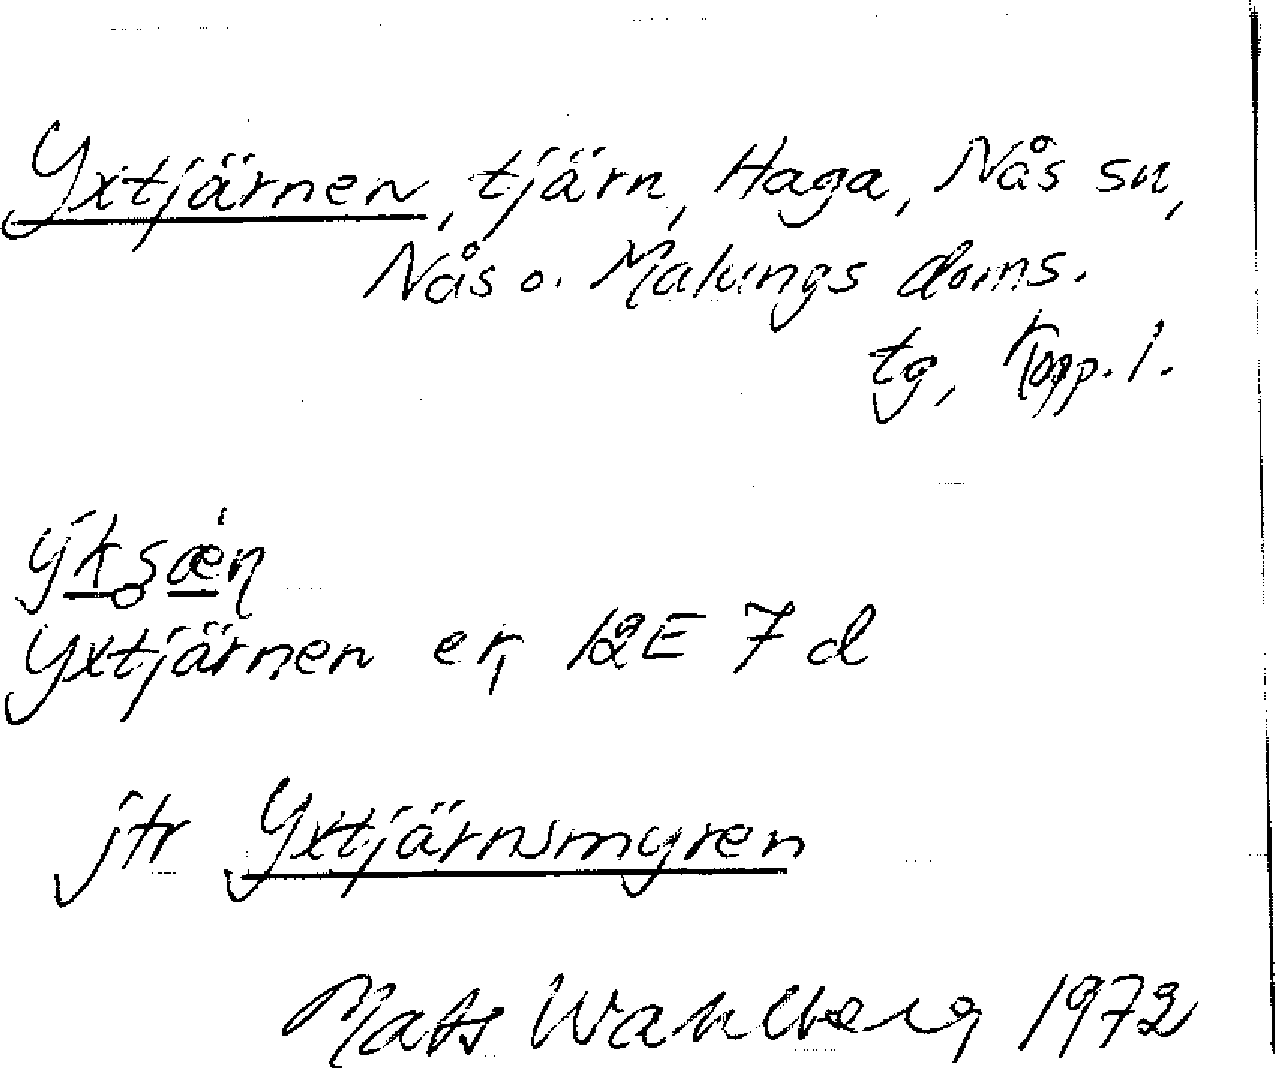 Yxtjärnen, tjärn, Haga, Nås sn,
Nås o. Malungs doms.
tg, Kopp. l.
Yxtjärnen er, 12E 7d
jtr Yxtjärnsmyren
Mats Wahlberg 1972